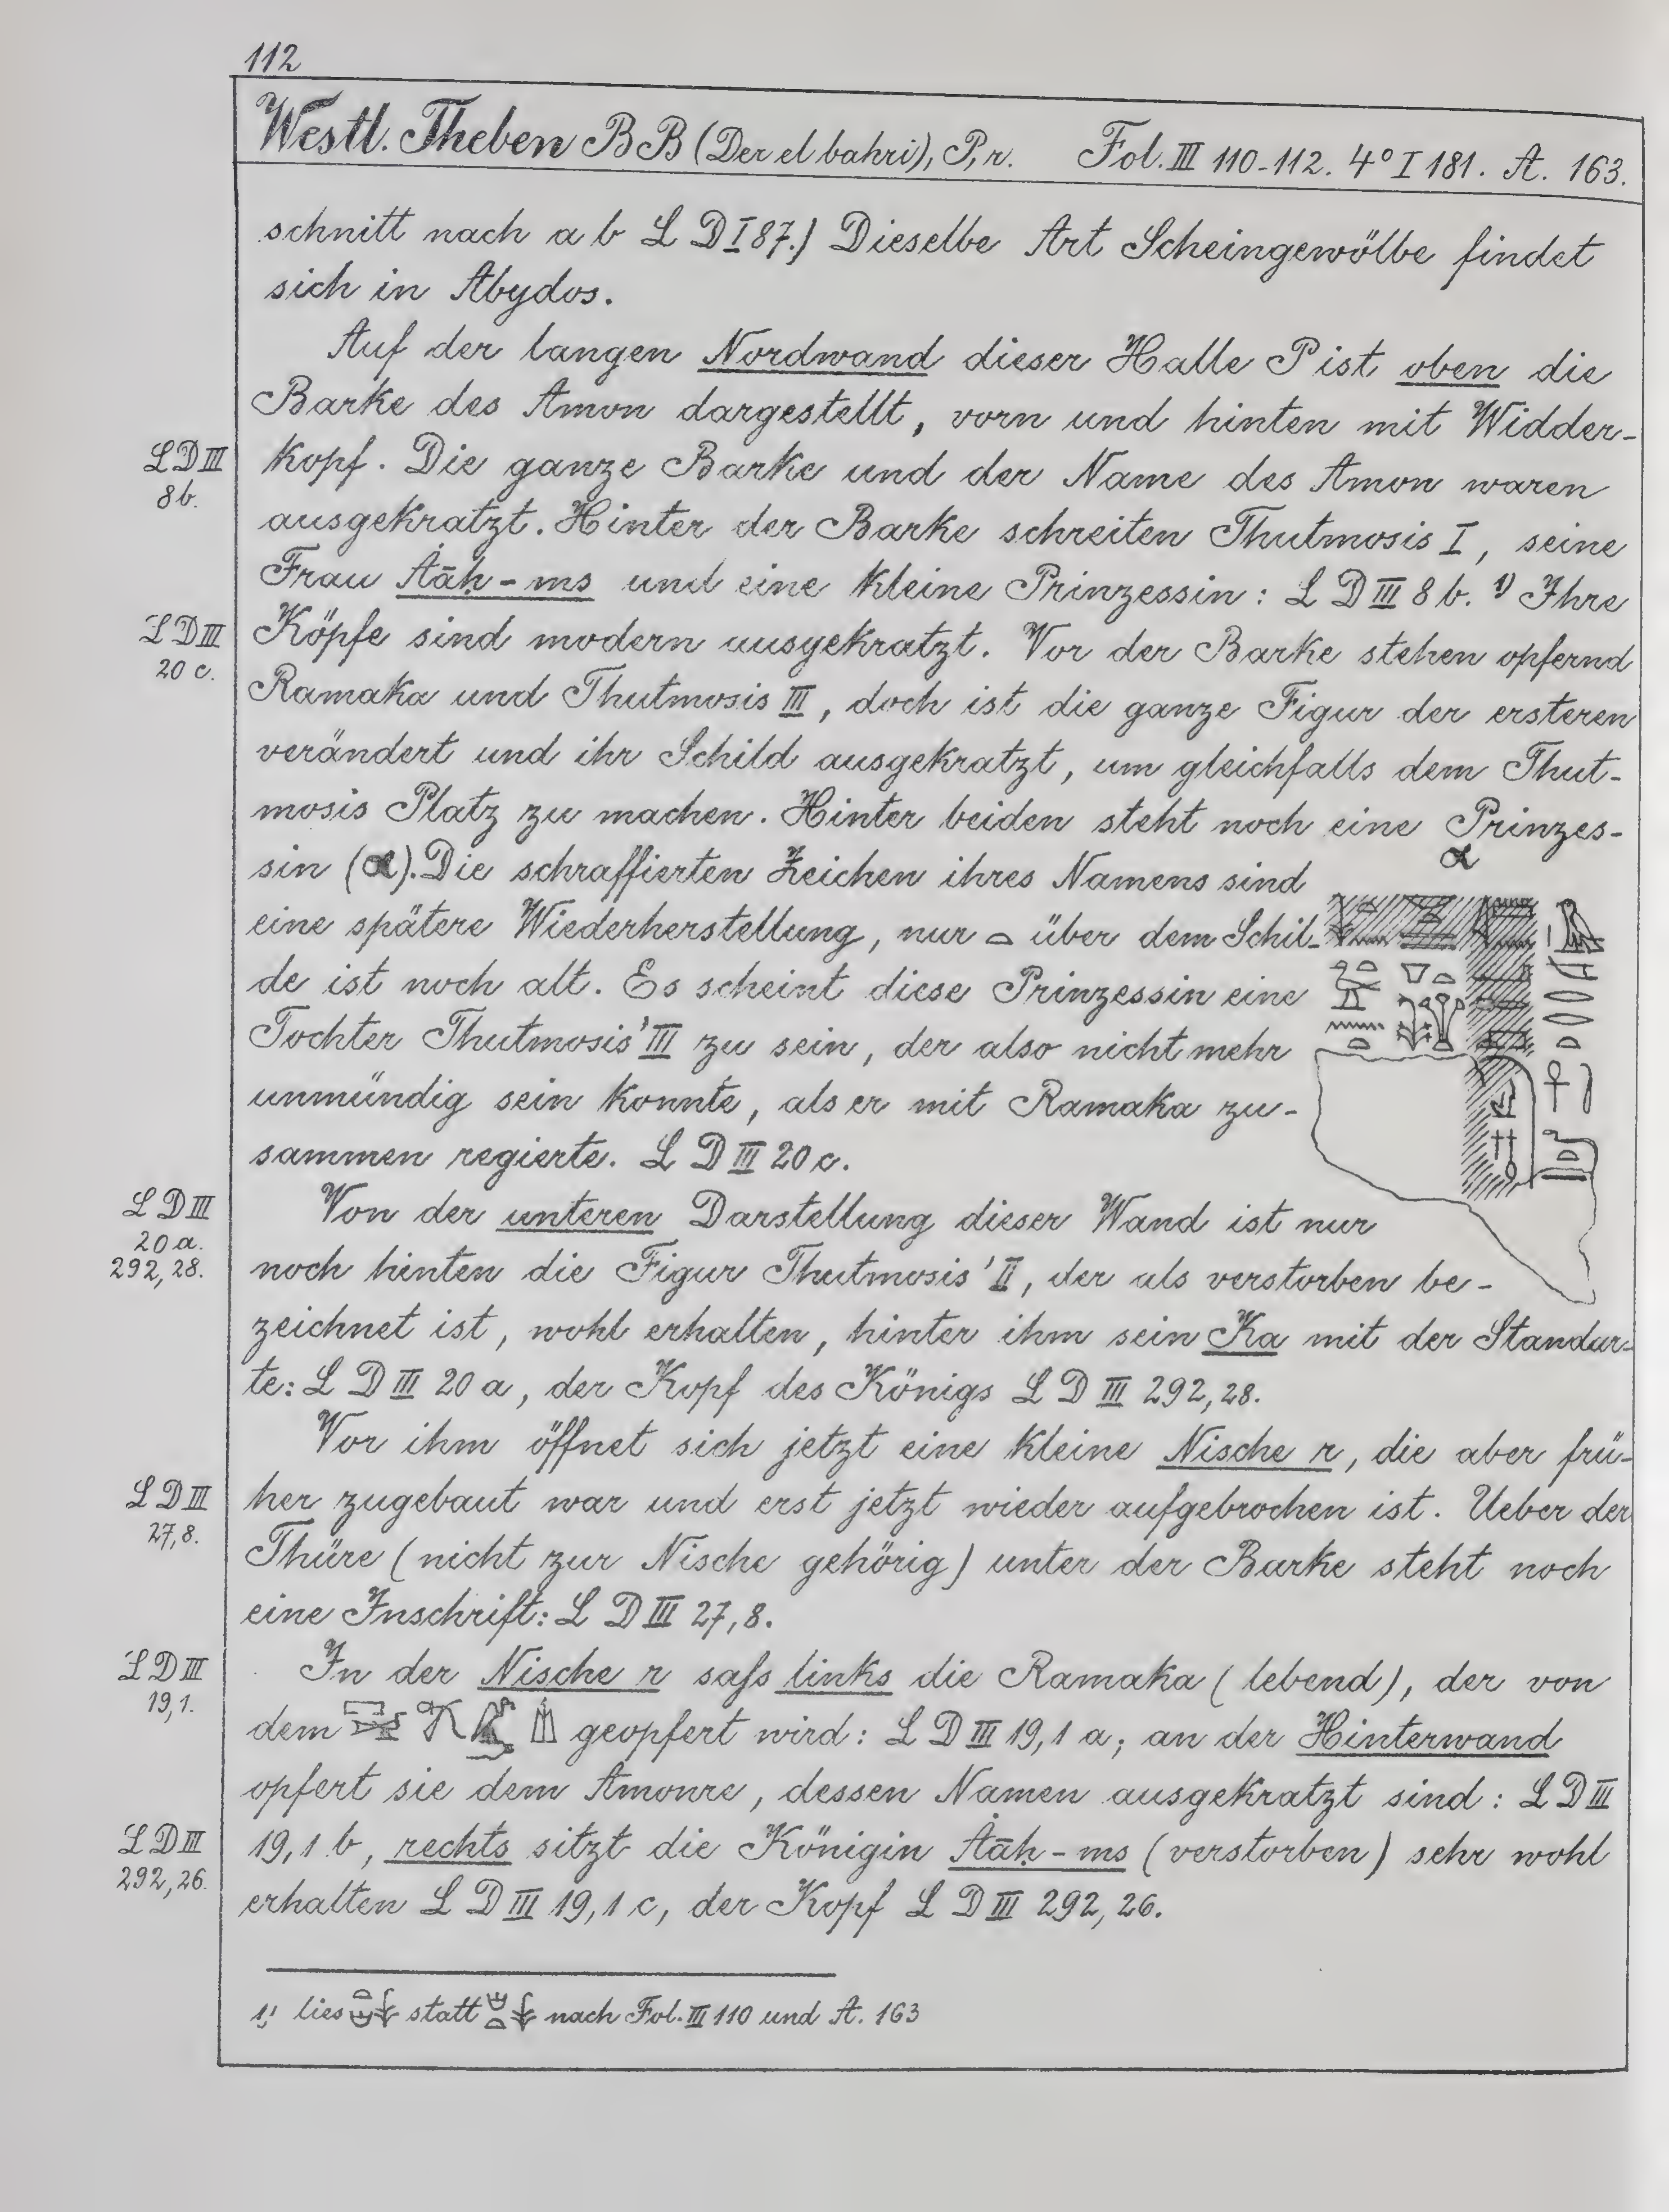 112
Westl. Theben BB (Der el bahri), P, r. Fol. III 110-112. 4° I 181. A. 163.
schnitt nach a b L D I 87.) Dieselbe Art Scheingewölbe findet
sich in Abydos.
Auf der langen Nordwand dieser Halle P ist oben die
Barke des Amon dargestellt, vorn und hinten mit Widder-
LD III
8b.
kopf. Die ganze Barke und der Name des Amon waren
ausgekratzt. Hinter der Barke schreiten Thutmosis I, seine
Frau Åāḥ-ms und eine kleine Prinzessin: L D III 8 b. 1) Ihre
LD III
20 c.
Köpfe sind modern ausgekratzt. Vor der Barke stehen opfernd
Ramaka und Thutmosis III, doch ist die ganze Figur der ersteren
verändert und ihr Schild ausgekratzt, um gleichfalls dem Thut-
mosis Platz zu machen. Hinter beiden steht noch eine Prinzes-
sin (α). Die schraffierten Zeichen ihres Namens sind
α
eine spätere Wiederherstellung, nur 𓏏 über dem Schil-
de ist noch alt. Es scheint diese Prinzessin eine
Tochter Thutmosis' III zu sein, der also nicht mehr
unmündig sein konnte, als er mit Ramaka zu-
sammen regierte. L D III 20 c.
L D III
20 a.
292, 28.
Von der unteren Darstellung dieser Wand ist nur
noch hinten die Figur Thutmosis' II, der als verstorben be-
zeichnet ist, wohl erhalten, hinter ihm sein Ka mit der Standar-
te: L D III 20 a, der Kopf des Königs L D III 292, 28.
Vor ihm öffnet sich jetzt eine kleine Nische r, die aber frü-
L D III
27, 8.
her zugebaut war und erst jetzt wieder aufgebrochen ist. Ueber der
Thüre (nicht zur Nische gehörig) unter der Barke steht noch
eine Inschrift: L D III 27, 8.
L D III
19, 1.
In der Nische r saſs links die Ramaka (lebend), der von
dem geopfert wird: L D III 19, 1 a; an der Hinterwand
opfert sie dem Amonre, dessen Namen ausgekratzt sind: L D III
L D III
292, 26.
19, 1 b, rechts sitzt die Königin Åāḥ-ms (verstorben) sehr wohl
erhalten L D III 19, 1 c, der Kopf L D III 292, 26.
1) lies statt nach Fol. III 110 und A. 163